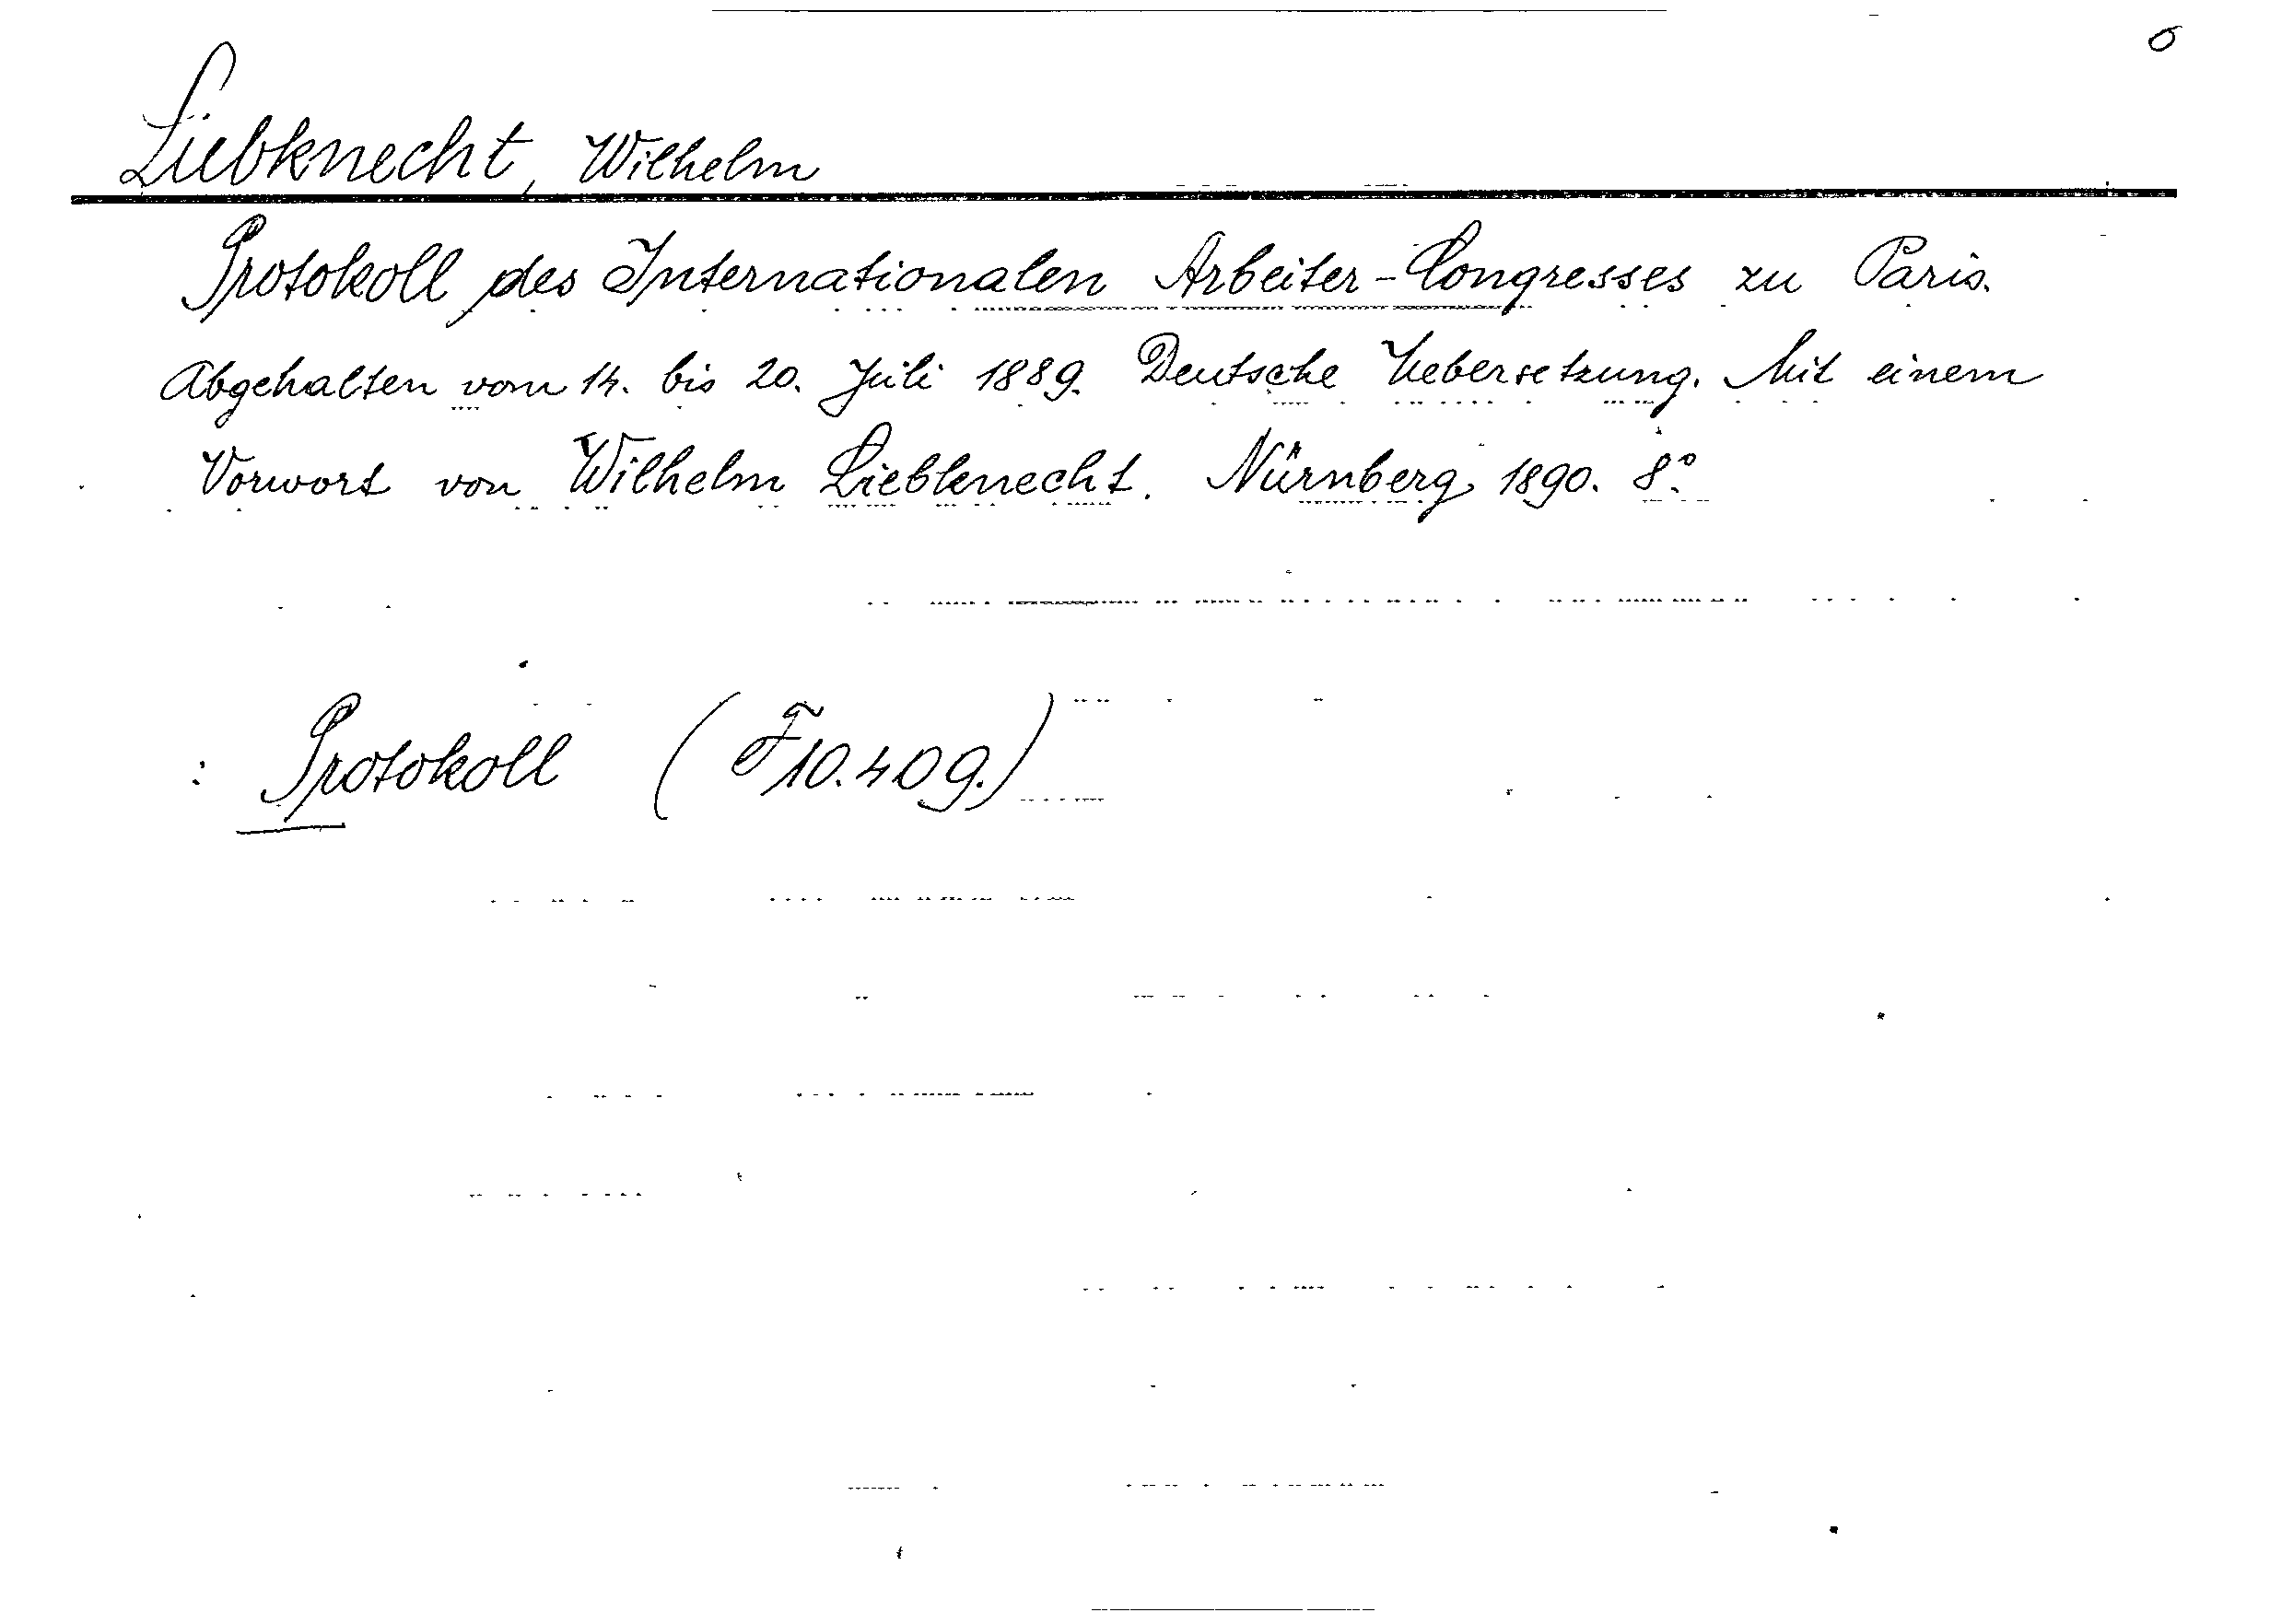 Liebknecht, Wilhelm
Protokoll des Internationalen Arbeiter-Congresses zu Paris.
Abgehalten vom 14. bis 20. Juli 1889. Deutsche Uebersetzung. Mit einem
Vorwort von Wilhelm Liebknecht. Nürnberg 1890. 8°
: Protokoll (F10.409.)